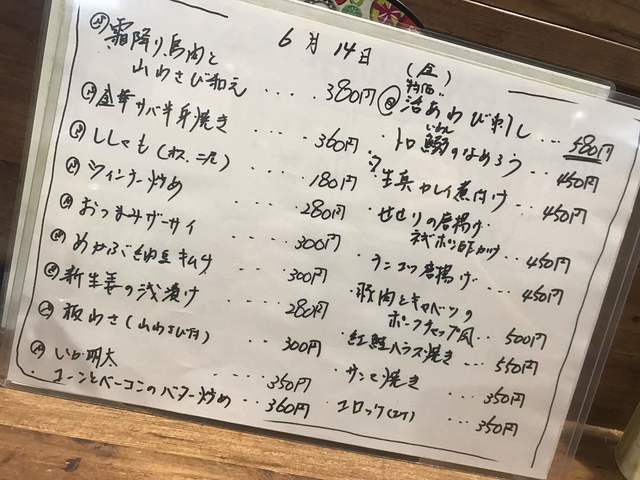 6月14日(金)
霜降り鳥肉と
山わさび和え ････ 380円
金華サバ半身焼き ････ 360円
ししゃも(オス、二尾) ･･･ 180円
ウィンナー炒め ････ 280円
おつまみザーサイ ････ 300円
めかぶ納豆キムチ ････ 300円
新生姜の浅漬け ････ 280円
板わさ(山わさび付) ････ 300円
いか明太 ････ 350円
コーンとベーコンのバター炒め ･･･ 360円
特価
活あわび刺し ･･･ 580円
いわし
トロ鰯のなめろう ･･･ 450円
生真カレイ煮付け ･･･ 450円
せせりの唐揚げ
ポン酢かけ ･･･ 450円
ナンコツ唐揚げ ･･･ 450円
豚肉とキャベツの
ポークチャップ風 ･･･ 500円
紅鮭ハラス焼き ･･･ 550円
サンマ焼き ･･･ 350円
コロッケ(2ケ) ･･･ 350円